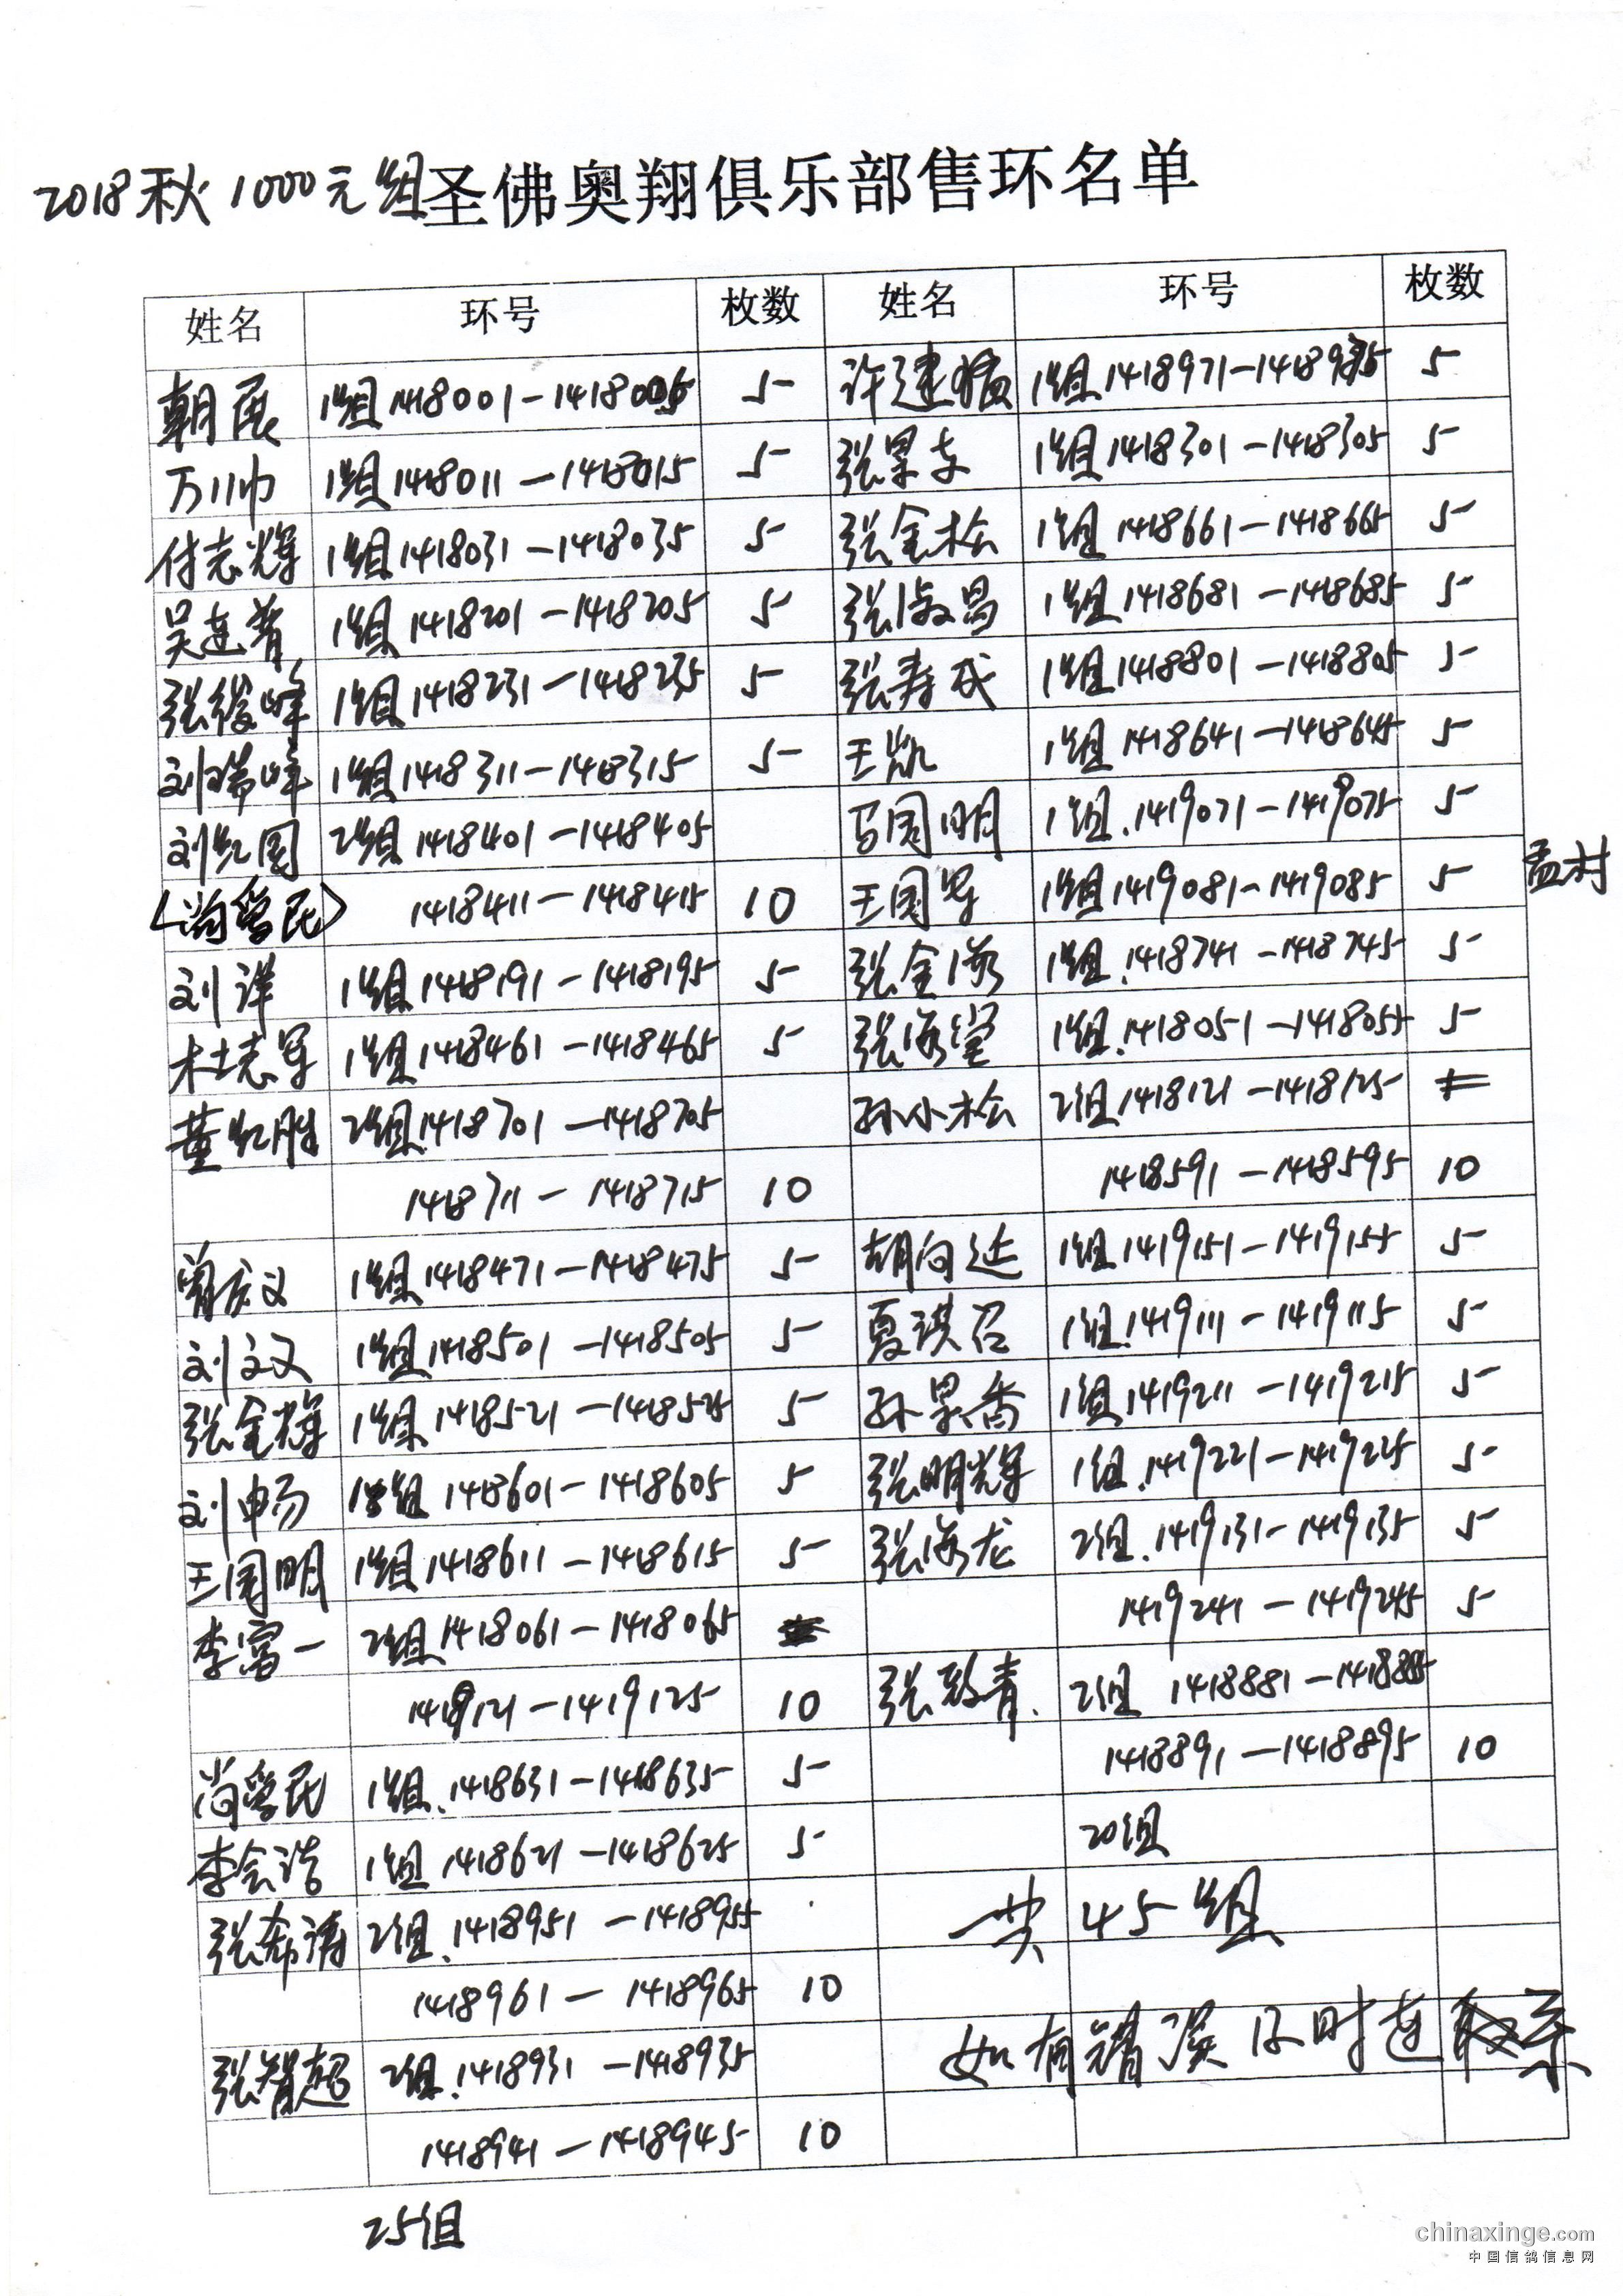 2018秋1000元组圣佛奥翔俱乐部售环名单
姓名 环号 枚数 姓名 环号 枚数
朝辰 1组1418001-1418005 5 许建猛 1组1418971-1418975 5
万川巾 1组1418011-1418015 5 张景 1组1418301-1418305 5
付志辉 1组1418031-1418035 5 张金松 1组1418661-1418665 5
吴连 1组1418201-1418205 5 张淑昌 1组1418681-1418685 5
张俊峰 1组1418231-1418235 5 张寿 1组1418801-1418805 5
刘瑞峰 1组1418311-1418315 5 王凯 1组1418641-1418645 5
刘红图 2组1418401-1418405 马国明 1组.1419071-1419075 5
(尚曾民) 1418411-1418415 10 王国军 1组1419081-1419085 5 孟村
刘洋 1组1418191-1418195 5 张金海 1组.1418741-1418745 5
杜志军 1组1418461-1418465 5 张海莹 1组.1418051-1418055 5
董红胜 2组1418701-1418705 孙小松 2组1418121-1418125
1418711-1418715 10 1418591-1418595 10
曾庆义 1组1418471-1418475 5 胡向廷 1组1419151-1419155 5
刘文义 1组1418501-1418505 5 夏洪召 1组.1419111-1419115 5
张金辉 1组1418521-1418525 5 孙景 1组1419211-1419215 5
刘申 1组1418601-1418605 5 张明辉 1组.1419221-1419225 5
王国明 1组1418611-1418615 5 张海龙 2组.1419131-1419135 5
李富一 2组1418061-1418065 1419241-1419245 5
1419121-1419125 10 张致青. 2组 1418881-1418885
尚曾民 1组.1418631-1418635 5 1418891-1418895 10
李会浩 1组1418621-1418625 5 20组
张希涛 2组.1418951-1418955 一共45组
1418961-1418965 10
张智超 2组.1418931-1418935 如有错误及时连系
1418941-1418945 10
25组
chinaxinge.com
中国信鸽信息网